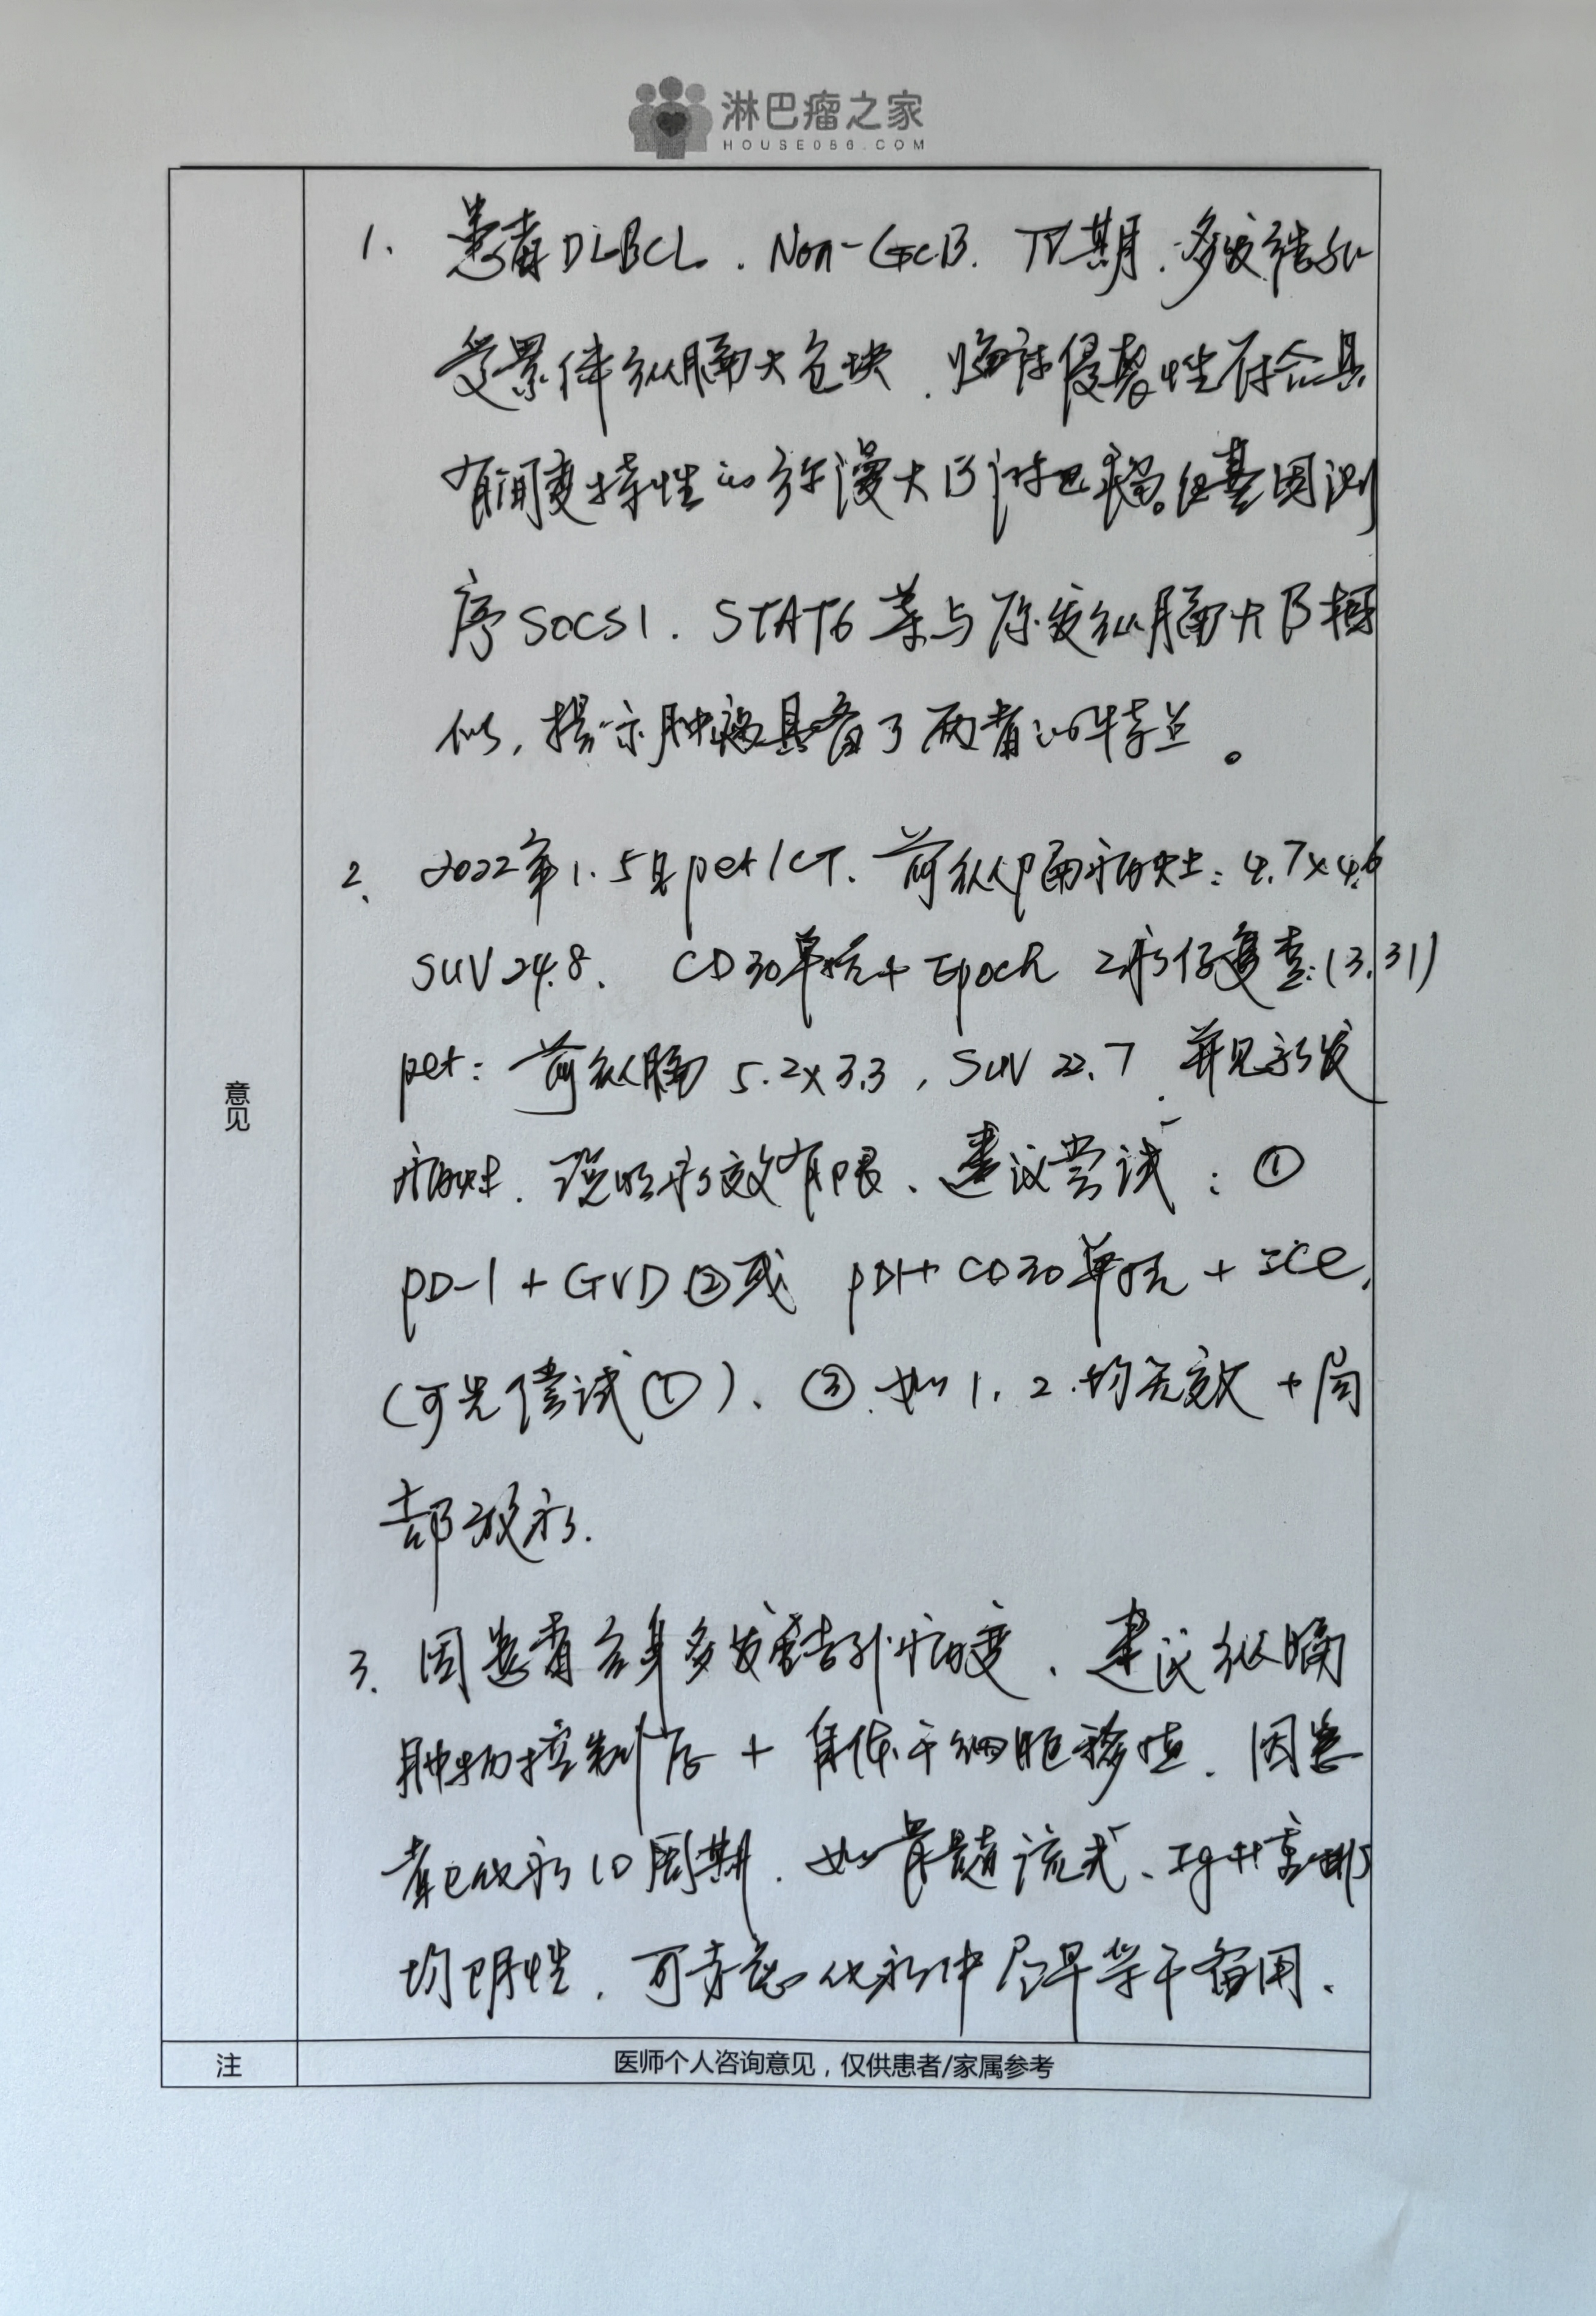 淋巴瘤之家
HOUSE086.COM
意见
1. 患者DLBCL. Non-GCB. IV期. 多发结外
受累伴纵膈大包块. 临床侵袭性符合具
有间变特性的弥漫大B淋巴瘤。但基因测
序SOCS1. STAT6 等与原发纵膈大B相
似, 提示肿瘤具备了两者的特点。
2. 2022年1.5日pet/CT. 前纵膈病灶: 4.7×4.6
SUV 24.8. CD30单抗+EpocR 2疗后复查: (3.31)
pet: 前纵膈 5.2×3.3, SUV 22.7. 并见新发
病灶. 说明疗效有限. 建议尝试: ①
PD-1 + GVD ②或 PD1+ CD30单抗 + ICE,
(可先偿试①). ③. 如 1. 2. 均无效 + 局
部放疗.
3. 因患者全身多发结外病变. 建议纵膈
肿物控制后 + 自体干细胞移植. 因患
者已化疗10周期. 如骨髓流式. IgH重排
均阴性. 可考虑化疗中尽早采干备用.
注
医师个人咨询意见，仅供患者/家属参考